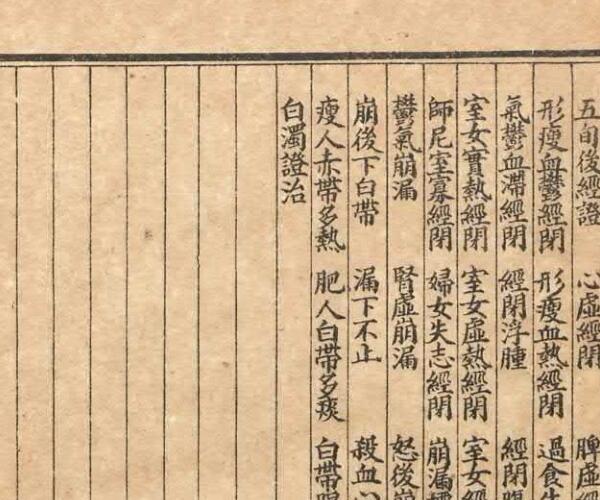 五旬後經證 心虛經閉 脾虛
形瘦血鬱經閉 形瘦血熱經閉 過食
氣鬱血滯經閉 經閉浮腫 經閉
室女實熱經閉 室女虛熱經閉 室女經
師尼室寡經閉 婦女失志經閉 崩漏
鬱氣崩漏 腎虛崩漏 怒後崩
崩後下白帶 漏下不止 殺血心
瘦人赤帶多熱 肥人白帶多痰 白帶
白濁證治